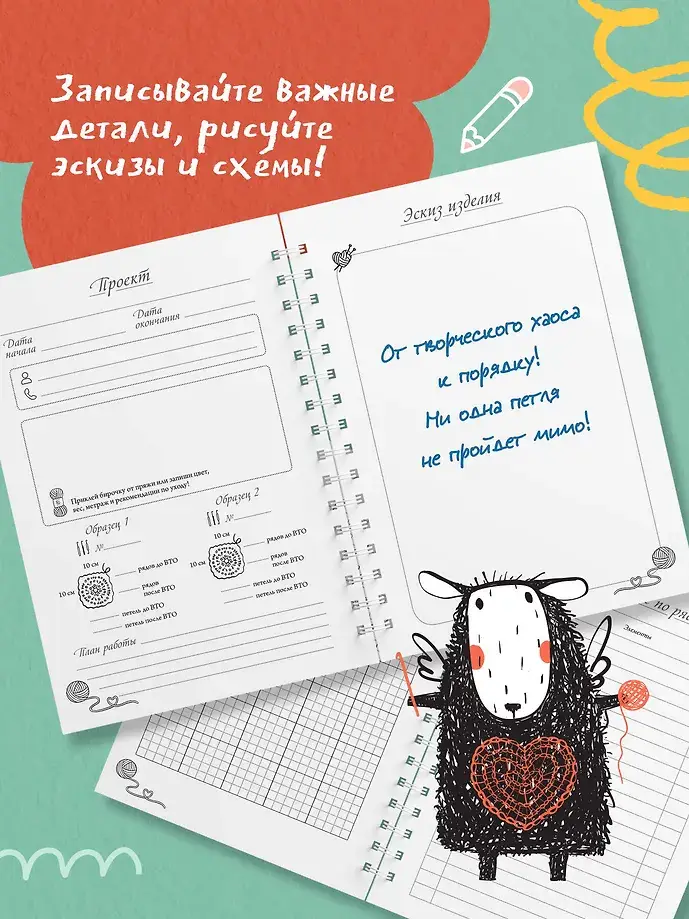 Записывайте важные
детали, рисуйте
эскизы и схемы!
Проект
Дата
начала
Дата
окончания
Приклей бирочку от пряжи или запиши цвет,
вес, метраж и рекомендации по уходу!
Образец 1
№
10 см
10 см
рядов до ВТО
рядов
после ВТО
петель до ВТО
петель после ВТО
Образец 2
№
10 см
10 см
рядов до ВТО
рядов
после ВТО
петель до ВТО
петель после ВТО
План работы
Эскиз изделия
От творческого хаоса
к порядку!
Ни одна петля
не пройдет мимо!
по ряд
Элементы